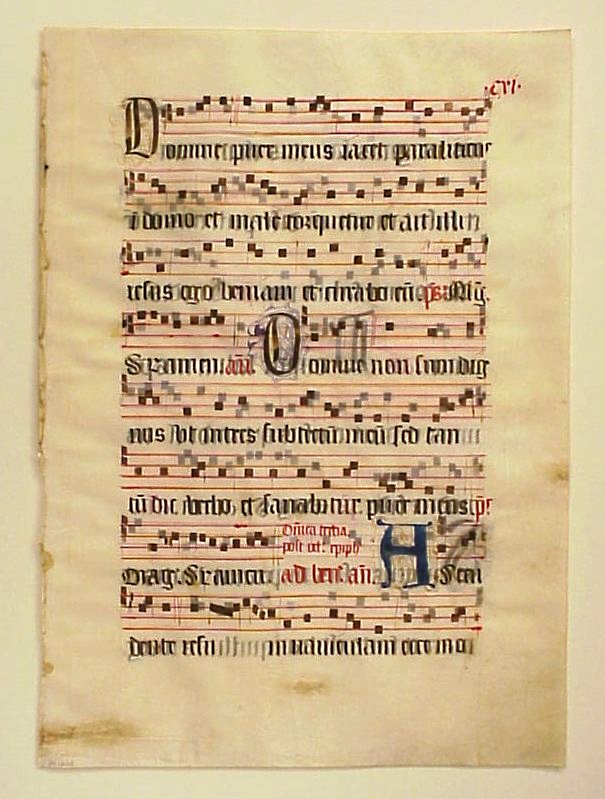 cxi.
Domine puer meus iacet paraliticus
ī domo et male torquetur et ait illi
iesus ego veniam et curabo eū ps. Mag̅.
Seuouaen añ. Domine non sum dig
nus ut intres sub tectū meū sed tan
tū dic verbo et sanabitur puer meus ps.
Mag. Seuouaen. Dñica tertia
post oct. epiph
ad ben. añ. Ascen
dente iesu in naviculam ecce mo